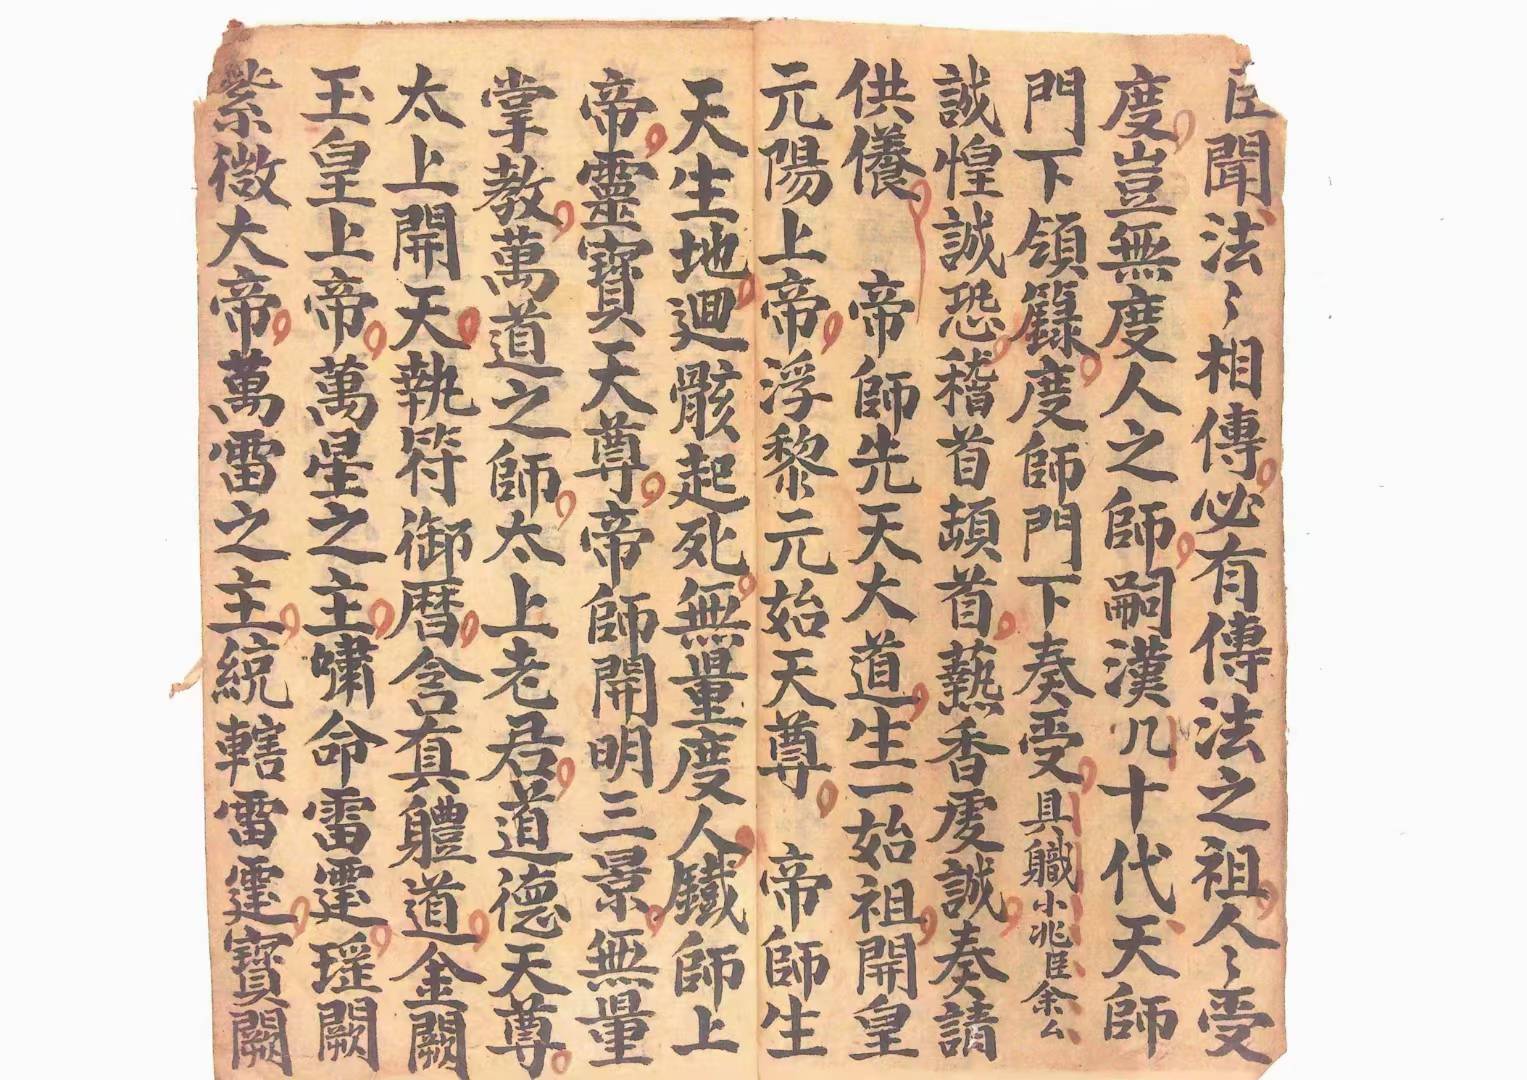 臣聞法〻相傳必有傳法之祖人〻受
度豈無度人之師嗣漢几十代天師
門下領籙度師門下奏受具職小兆臣余厶
誠惶誠恐稽首頓首爇香虔誠奏請
供養 帝師先天大道生一始祖開皇
元陽上帝浮黎元始天尊 帝師生
天生地迴骸起死無量度人鐵師上
帝靈寶天尊帝師開明三景無量
掌教萬道之師太上老君道德天尊
太上開天執符御曆含真體道金闕
玉皇上帝萬星之主嘯命雷霆瑶闕
紫微大帝萬雷之主統轄雷霆寶闕